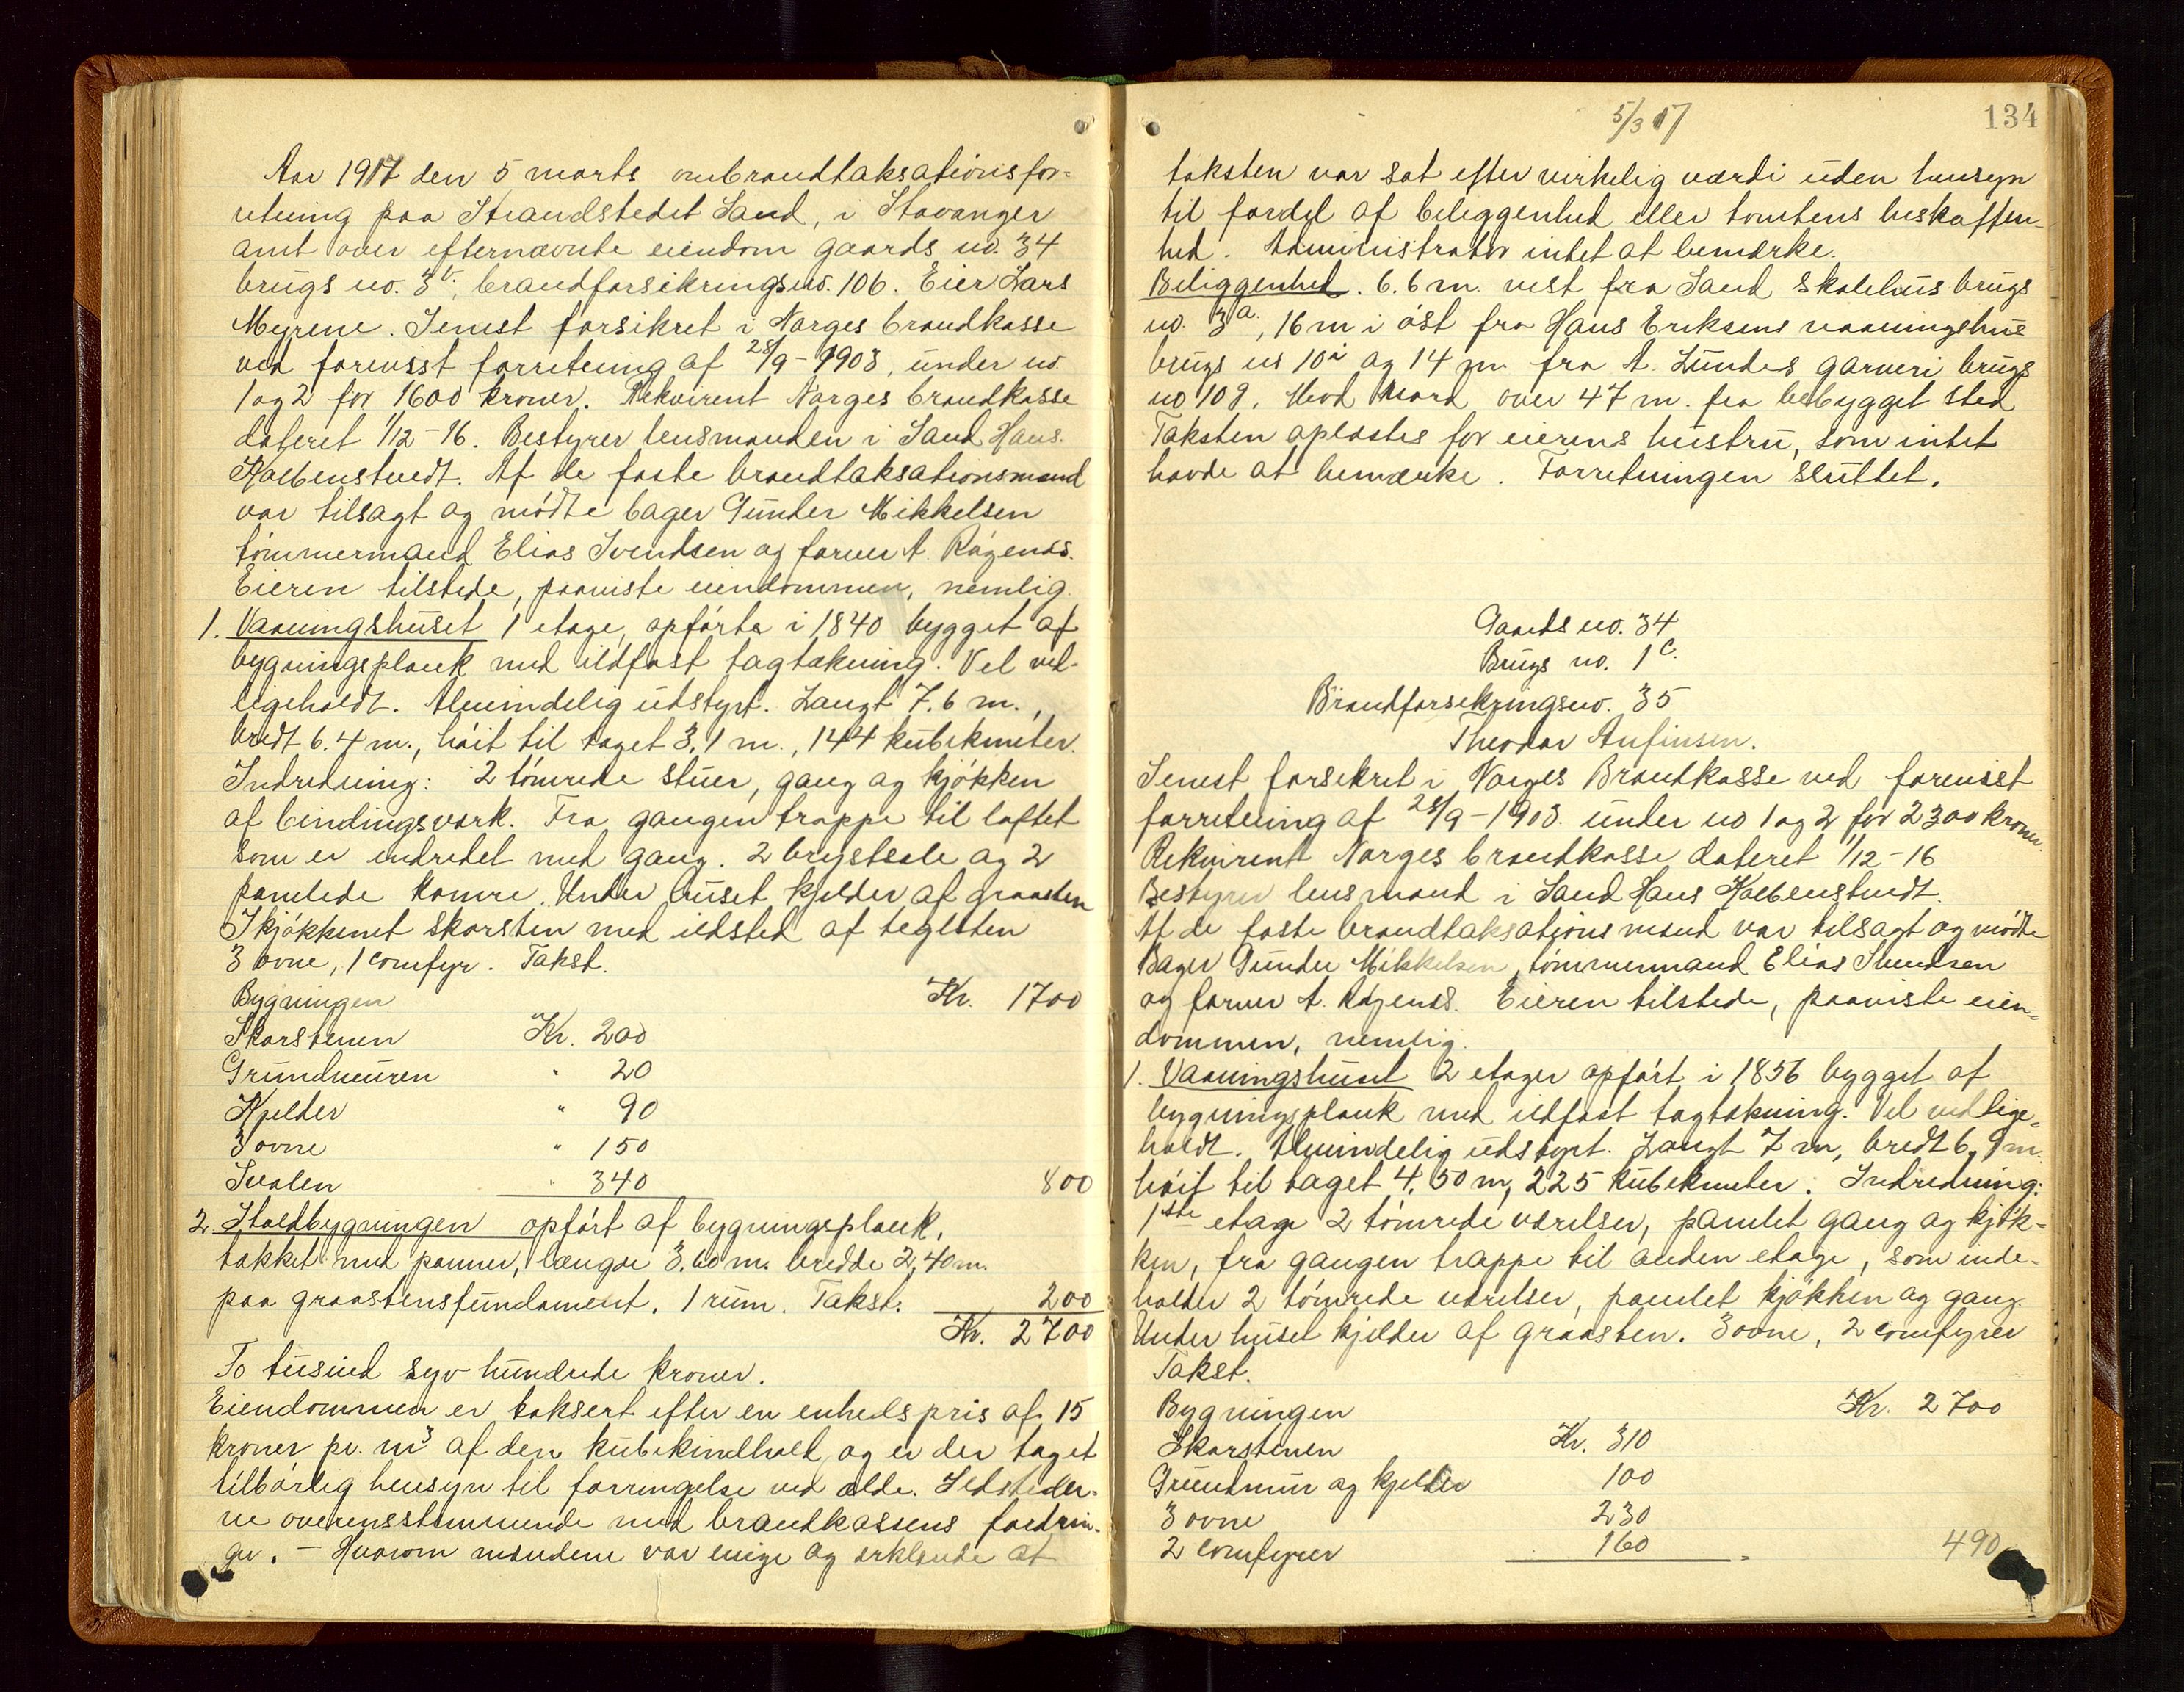 Aar 1917 den 5 marts ombrandtaksationsfor=
retning paa Strandstedet Sand, i Stavanger
amt over efternævnte eiendom gaards no. 34
brugs no. 3 brandforsikringsno. 106. Eier Lars
Myrene. Senest forsikret i Norges brandkasse
ved forevist forretning af 28/9-1903, under no.
1 og 2 for 1600 kroner. Rekvirent Norges brandkasse
dateret 1/12-16. Bestyrer lensmanden i Sand Hans.
Kolbenstvedt. Af de faste brandtaksationsmænd
var tilsagt og mødte bager Gunder Mikkelsen
tømmermand Elias Svendsen og farver A. Røgenæs.
Eieren tilstede, paaviste eiendommen, nemlig.
1. Vaaningshuset 1 etage, opførte i 1840 bygget af
bygningsplank med ildfast tagtækning. Vel ved-
ligeholdt. Almindelig udstyrt. Langt 7.6 m.,
bredt 6.4 m., høit til taget 3.1 m., 144 kubikmeter.
Indredning: 2 tømrede stuer, gang og kjøkken
af bindingsverk. Fra gangen trappe til loftet
som er indredet med gang. 2 brystsale og 2
panelede kamre. Under huset kjelder af graasten
I kjøkkenet skorsten med ildsted af teglsten
3 ovne, 1 comfyr. Takst.
Bygningen Kr. 1700
Skorstenen Kr. 200
Grundmuren " 20
Kjelder " 90
3 ovne " 150
Svalen " 340 800
2. Staldbygningen opført af bygningsplank,
tækket med panner, længde 3.60 m. bredde 2,40 m.
paa graastensfundament. 1 rum. Takst. 200
Kr. 2700
To tusind syv hundrede kroner.
Eiendommen er taksert efter en enhedspris af 15
kroner pr. m3 af den kubikindhold og er der taget
tilbørlig hensyn til forringelse ved ælde. Ildsteder⸗
ne overensstemmende med brandkassens fordrin-
ger. – Hvorom mændene var enige og erklærede at
5/3 17
134
taksten var sat efter virkelig værdi uden hensyn
til fordel af beliggenhed eller tomtens beskaffen-
hed. Administrator intet at bemærke.
Beliggenhed. 6.6 m. vest fra Sand skolehus brugs
no. 3 a., 16 m i øst fra Hans Eriksens vaaningshus
brugs no 10 i og 14 m fra A. Lundes garveri brugs
no 108. Mod Nord over 47 m. fra bebygget sted
Taksten oplæstes for eierens hustru, som intet
havde at bemærke. Forretningen sluttet.
Gaards no. 34
Brugs no. 1 c.
Brandforsikringsno. 35
Theodor Anfinsen.
Senest forsikret i Norges Brandkasse ved forevist
forretning af 28/9-1903. under no 1 og 2 for 2300 kroner.
Rekvirent Norges brandkasse dateret 1/12-16
Bestyrer lensmand i Sand Hans Kolbenstvedt.
Af de faste brandtaksationsmænd var tilsagt og mødte
Bager Gunder Mikkelsen, tømmermand Elias Svendsen
og farver A. Røgenæs. Eieren tilstede, paaviste eien=
dommen, nemlig.
1. Vaaningshuset 2 etager opført i 1856 bygget af
bygningsplank med ildfast tagtækning. Vel vedlige=
holdt. Almindelig udstyrt. Langt 7 m, bredt 6,9 m.
høit til taget 4,50 m, 225 kubikmeter. Indredning:
1ste etage 2 tømrede værelser, panelet gang og kjøk-
ken, fra gangen trappe til anden etage, som inde-
holder 2 tømrede værelser, panelet kjøkken og gang.
Under huset kjelder af graasten. 3 ovne, 2 comfyrer
Takst.
Bygningen Kr. 2700
Skorstenen Kr. 310
Grundmur og kjelder 100
3 ovne 230
2 comfyrer 160 490